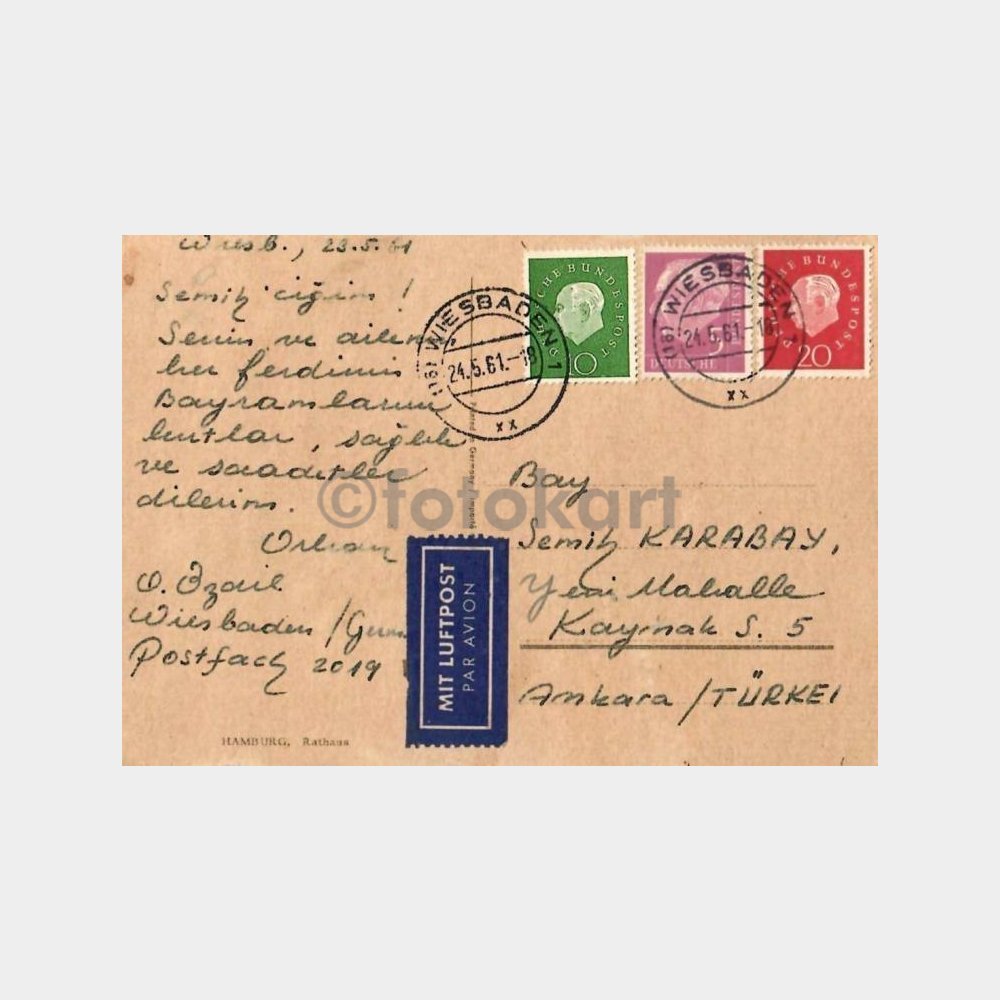 Wiesb., 23.5.61
Semih'ciğim!
Senin ve ailen
her ferdinin
Bayramlarını
kutlar, sağlık
ve saadetler
dilerim.
Orhan
O.
Wiesbaden / Germ
Postfach 2019
HAMBURG, Rathaus
DEUTSCHE BUNDESPOST
10
DEUTSCHE
5
DEUTSCHE BUNDESPOST
20
(16) WIESBADEN 1
24.5.61.-18
XX
(16) WIESBADEN 1
24.5.61.-18
XX
Printed in Germany
MIT LUFTPOST
PAR AVION
Bay
Semih KARABAY,
Yeni Mahalle
Kaynak S. 5
Ankara / TÜRKEI
©fotokart